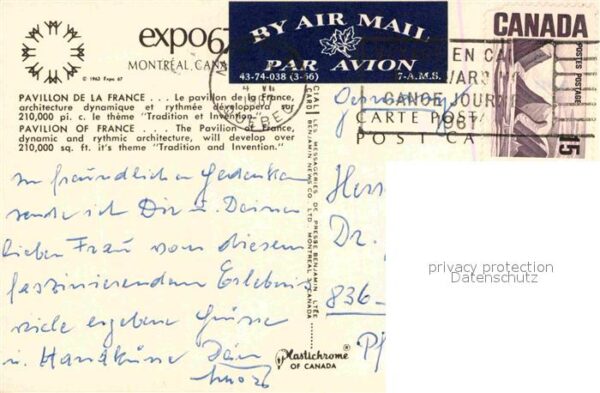 expo67
MONTRÉAL, CANADA
© 1963 Expo 67
BY AIR MAIL
PAR AVION
43-74-038 (3-56) 7-A.M.S.
CANADA
POSTES POSTAGE
15
CANOE JOUR
CARTE POST
POST CA
PAVILLON DE LA FRANCE . . . Le pavillon de la France,
architecture dynamique et rythmée développera sur
210,000 pi. c. le thème "Tradition et Invention."
PAVILION OF FRANCE . . . The Pavilion of France,
dynamic and rythmic architecture, will develop over
210,000 sq. ft. it's theme "Tradition and Invention."
In freundlichem Gedenken
sende ich Dir u. Deiner
lieben Frau von diesem
faszinierendem Erlebnis
viele ergebene Grüsse
u. Handküsse Dein
LES MESSAGERIES DE PRESSE BENJAMIN LTÉE
BENJAMIN NEWS CO. LTD. MONTREAL CANADA
Plastichrome
OF CANADA
Germany
Herr
Dr.
836-
Pf
privacy protection
Datenschutz